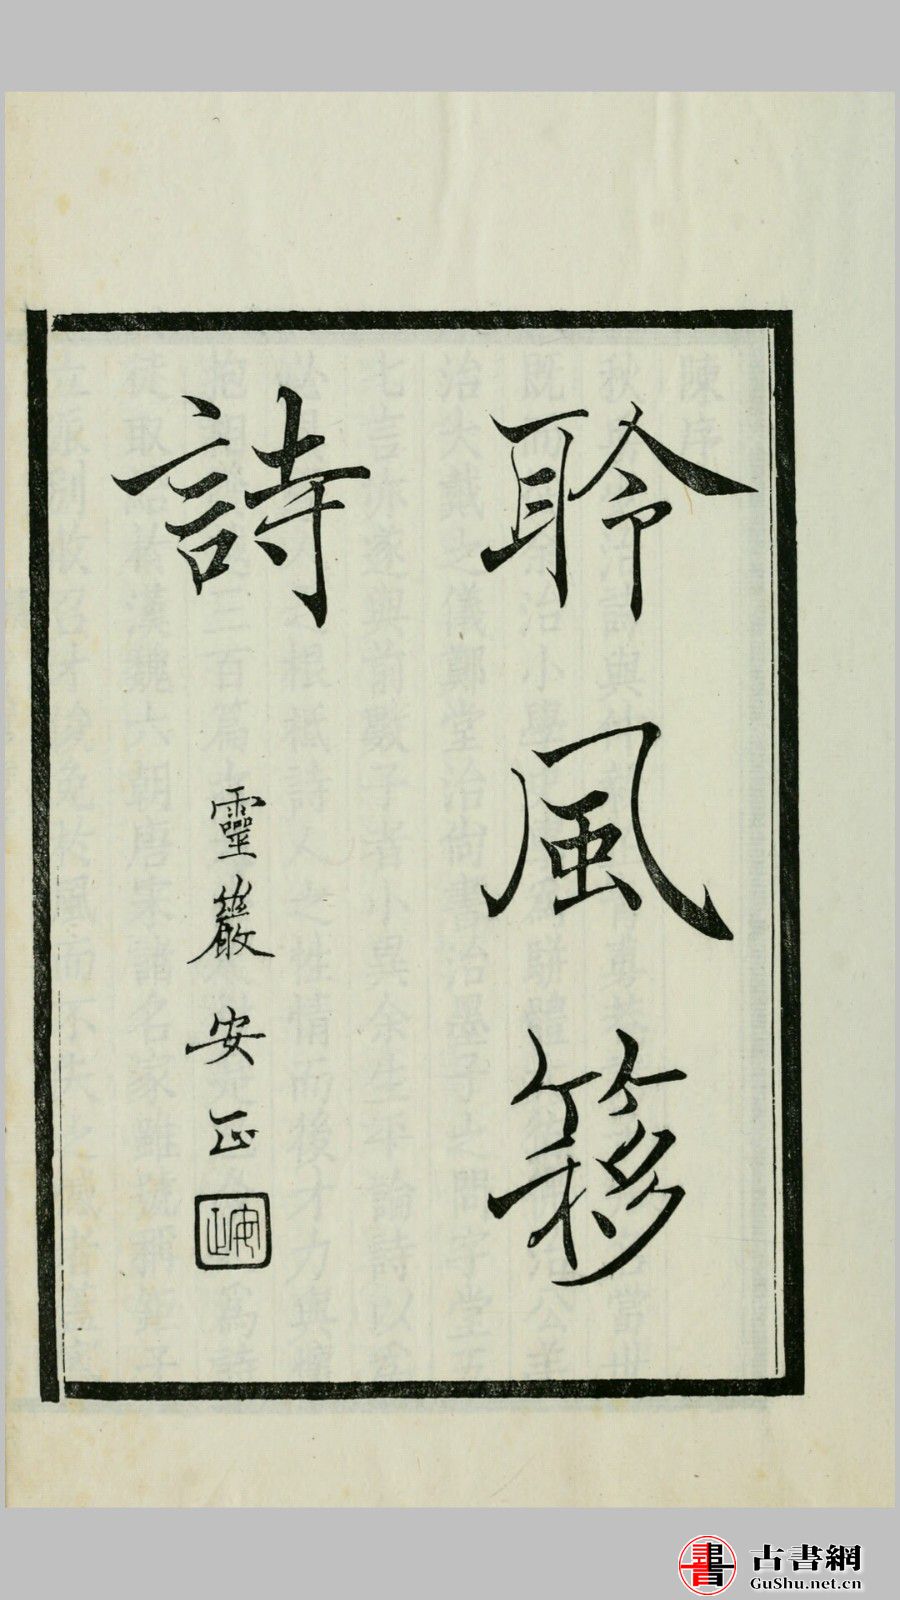 聆風簃
詩
靈巖安正
安正
書
古書網
GuShu.net.cn